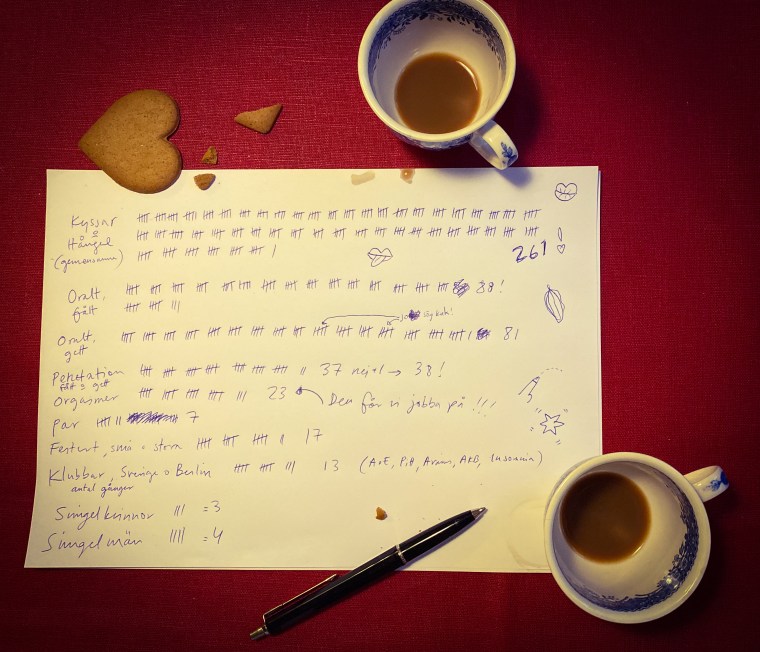 Kyssar
o
Hångel
(gemensamma) 261
Oralt, 88!
fått
Oralt, 81
gett
Penetration 37 nej → 38!
fått o gett
Orgasmer 23 Den får vi jobba på!!!
Par 7
Festent, små o stora 17
Klubbar, Sverige o Berlin 13 (AoE, PiH, Aram, AKB, Insomnia)
antal gånger
Singelkvinnor =3
Singelmän =4